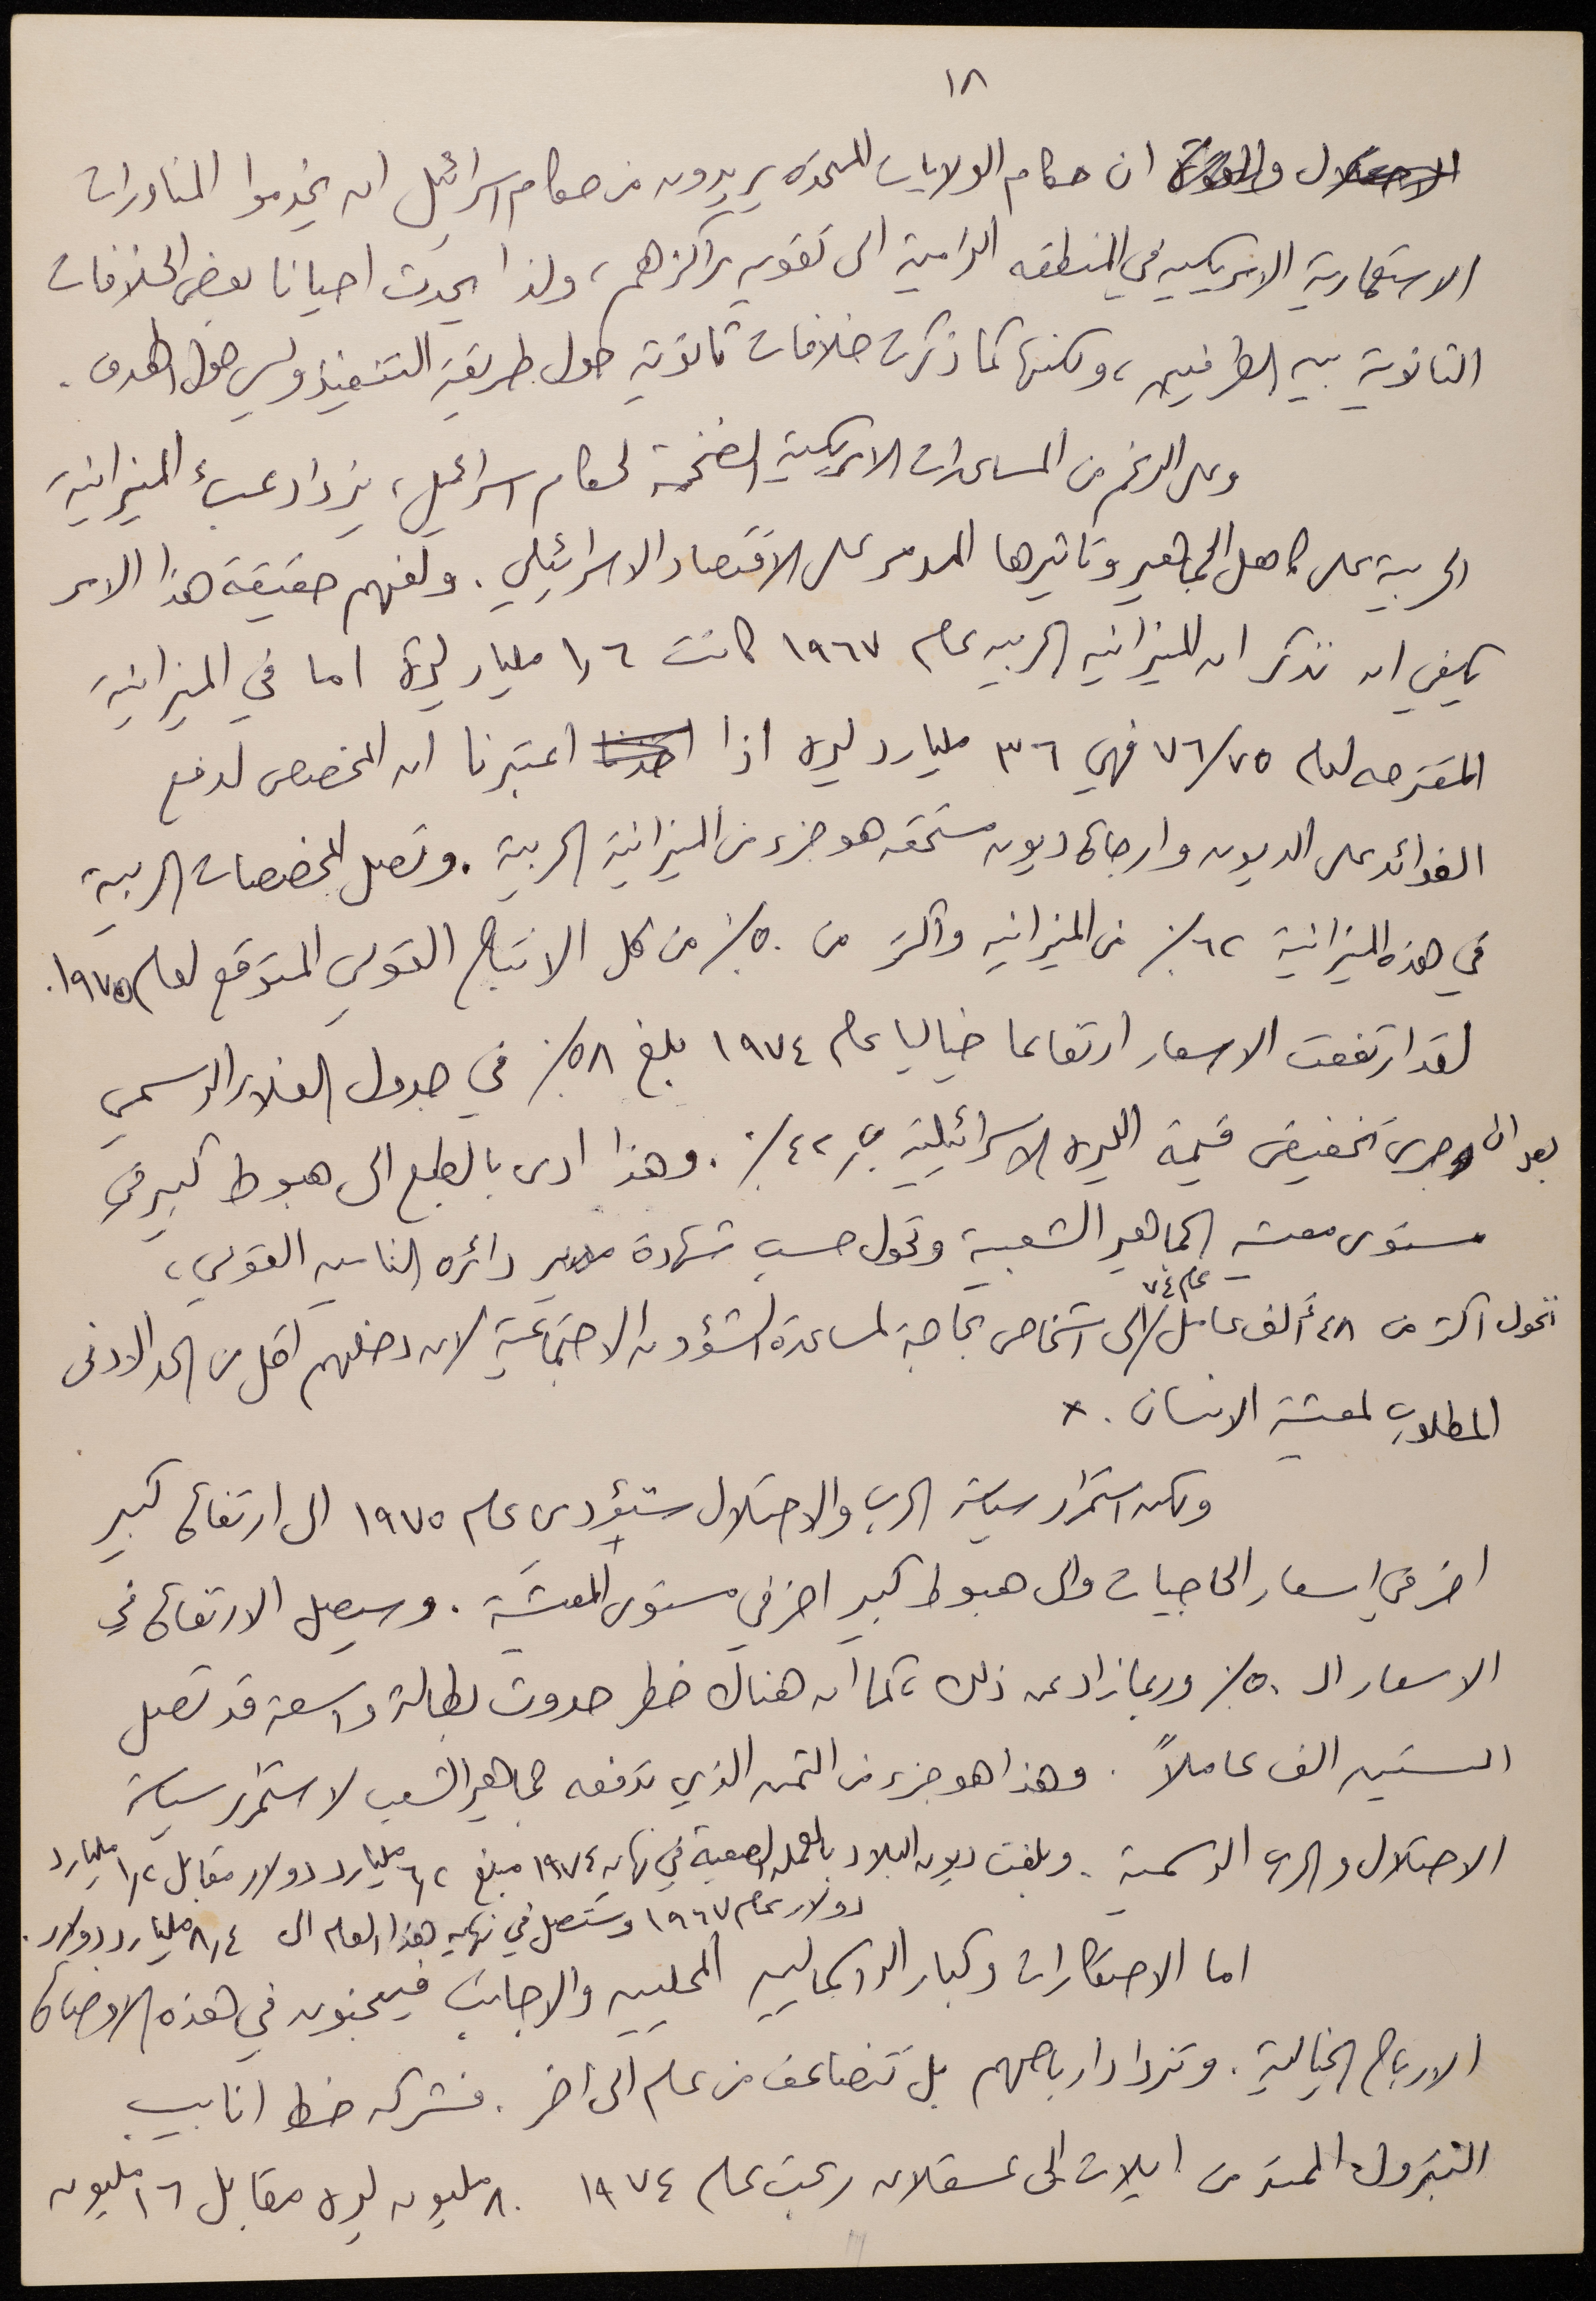 ١٨
الاحتلال ان حكام الولايات المتحدة يريدون من حكام اسرائيل ان يخدموا المناورات
الاستعمارية الامريكيه في المنطقه الرامية الى تقويه مراكزهم، ولذا يحدث احيانا بعض الخلافات
الثانوية بين الطرفين، ولكنها كما ذكرت خلافات ثانوية حول طريقة التنفيذ وليس حول الهدف.
وعلى الرغم من المساعدات الامريكية الضخمة لحكام اسرائيل، يزداد عبء الميزانية
الحربية على كاهل الجماهير وتاثيرها المدمر على الاقتصاد الاسرائيلي. ولفهم حقيقة هذا الامر
يكفي ان نذكر ان الميزانيه الحربيه عام ١٩٦٧ كانت ١,٦ مليار ليرة اما في الميزانية
المقترحه لعام ٧٦/٧٥ فهي ٣٦ مليارد ليره اذا اخذنا اعتبرنا ان المخصص لدفع
الفوائد على الديون وارجاع ديون مستحقه هو جزء من الميزانية الحربية. وتصل المخصصات الحربية
في هذه الميزانية ٦٢٪ من الميزانيه واكثر من ٥٠٪ من كل الانتاج القومي المتوقع لعام ١٩٧٥.
لقد ارتفعت الاسعار ارتفاعا خياليا عام ١٩٧٤ بلغ ٥٨٪ في جدول الغلاء الرسمي
بعد ان جرى تخفيض قيمة الليره الاسرائيلية ب ٤٢٪. وهذا ادى بالطبع الى هبوط كبير في
مستوى معيشة الجماهير الشعبية وتحول حسب شهادة مدير دائره التامين القومي،
تحول اكثر من ٤٨ ألف عامل عام ٧٤ الى اشخاص بحاجة لمساعدة الشؤون الاجتماعية لان دخلهم اقل من الحد الادنى
المطلوب لمعيشة الانسان. ×
ولكن استمرار سياسة الحرب والاحتلال ستؤدي عام ١٩٧٥ الى ارتفاع كبير
اخر في اسعار الحاجيات والى هبوط كبير اخر في مستوى المعيشة. وسيصل الارتفاع في
الاسعار الى ٥٠٪ وربما زاد عن ذلك، كما ان هناك خطر حدوث بطالة واسعة قد تصل
الستين الف عاملاً. وهذا هو جزء من الثمن الذي تدفعه جماهير الشعب لاستمرار سياسة
الاحتلال والحرب الرسمية. وبلغت ديون البلاد بالعمله الصعبة في نهاية ١٩٧٤ مبلغ ٦,٢ مليارد دولار مقابل ١,٢ مليارد
دولار عام ١٩٦٧ وستصل في نهايه هذا العام الى ٨,٤ مليارد دولار.
اما الاحتكارات وكبار الرأسماليين المحليين والاجانب فيجنون في هذه الاوضاع
الارباح الخيالية. وتزداد ارباحهم بل تتضاعف من عام الى اخر. فشركه خط انابيب
البترول الممتد من ايلات الى عسقلان ربحت عام ١٩٧٤ ٨٠ مليون ليره مقابل ١٦ مليون